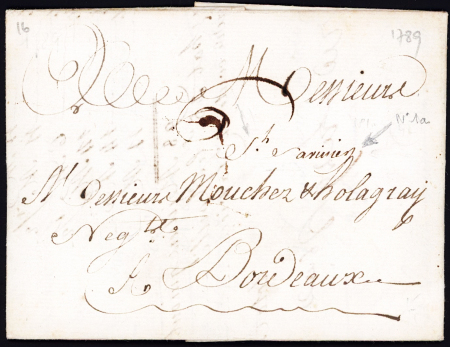 16
1789
Messieurs
N° 1a
Messieurs Mouchez & holagray
Neg.ts
A Bordeaux